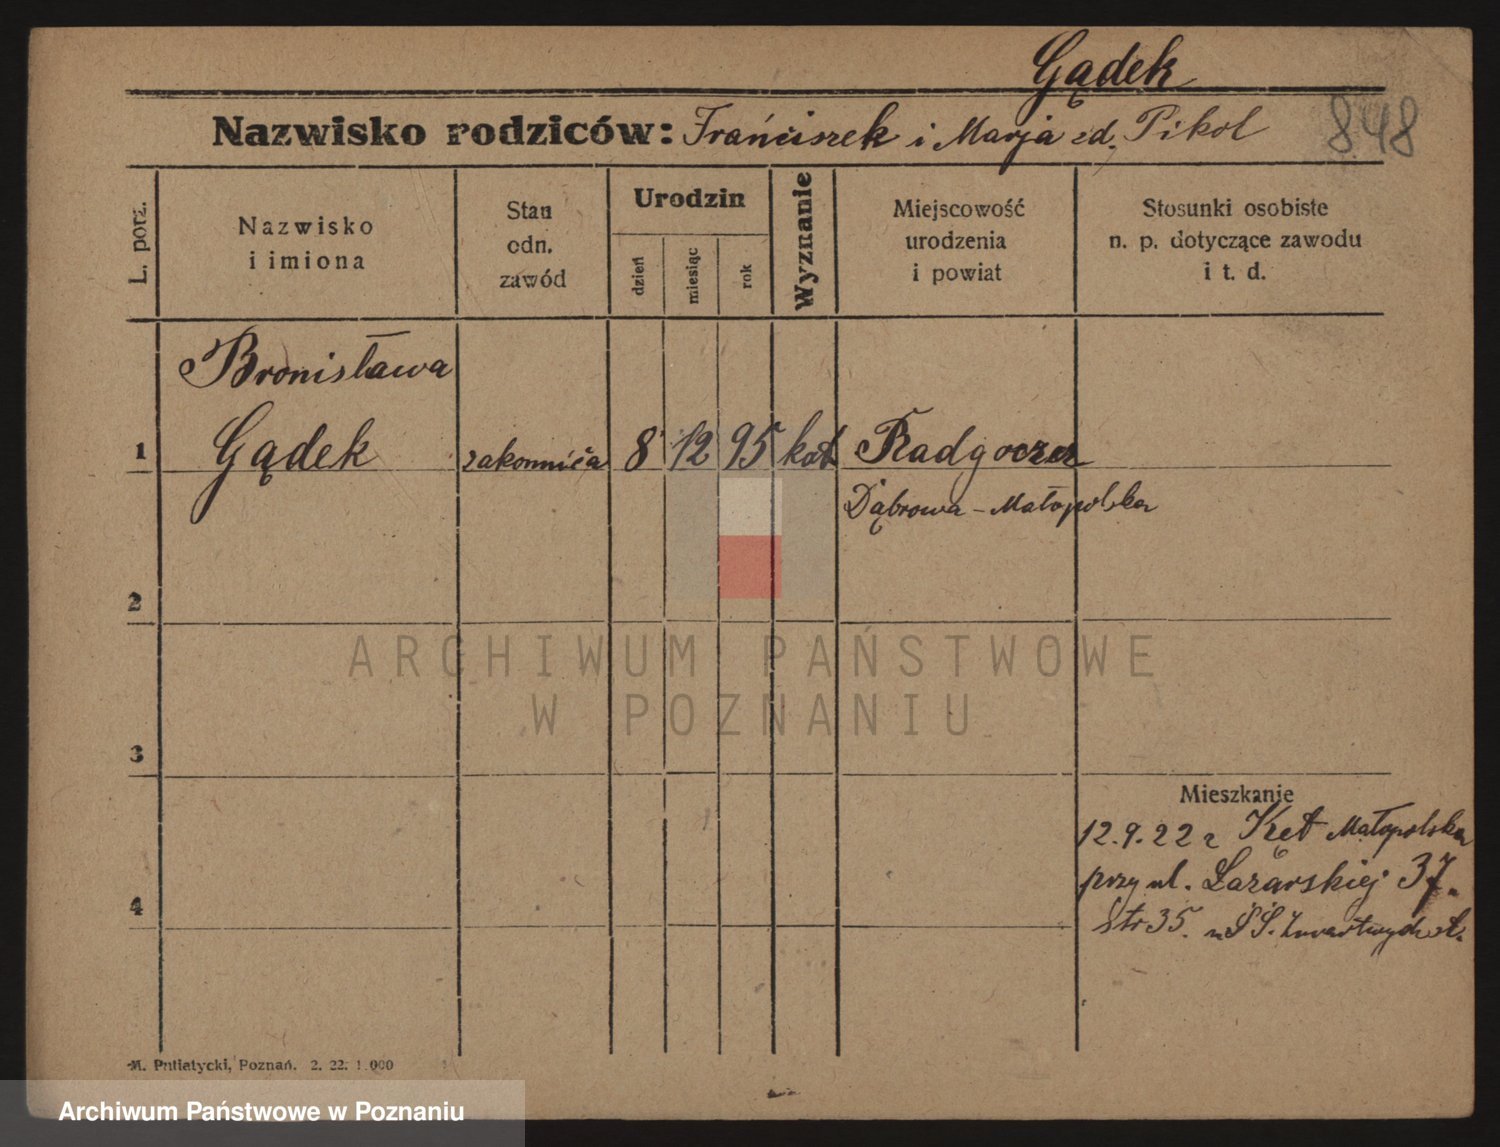 Gądek
Nazwisko rodziców: Franciszek i Marja zd. Pikol 848
L. porz.
Nazwisko
i imiona
Stan
odn.
zawód
Urodzin
dzień
miesiąc
rok
Wyznanie
Miejscowość
urodzenia
i powiat
Stosunki osobiste
n. p. dotyczące zawodu
i t. d.
Bronisława
1 Gądek zakonnica 8 12 95 kat Radgoszcz
Dąbrowa - Małopolska
2
ARCHIWUM PAŃSTWOWE
W POZNANIU
3
Mieszkanie
12.9.22 z Kęt Małopolska
przy ul. Łazarskiej 37.
4
Str 35. u SS. Zmartwychwst.
M. Putiatycki, Poznań. 2. 22. 1.000
Archiwum Państwowe w Poznaniu